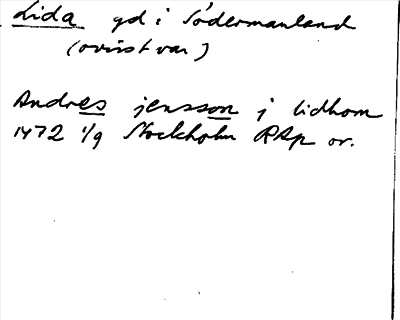 Lida gd i Södermanland
(ovisst var)
Andres jensson j lidhom
1472 1/9 Stockholm RAp or.